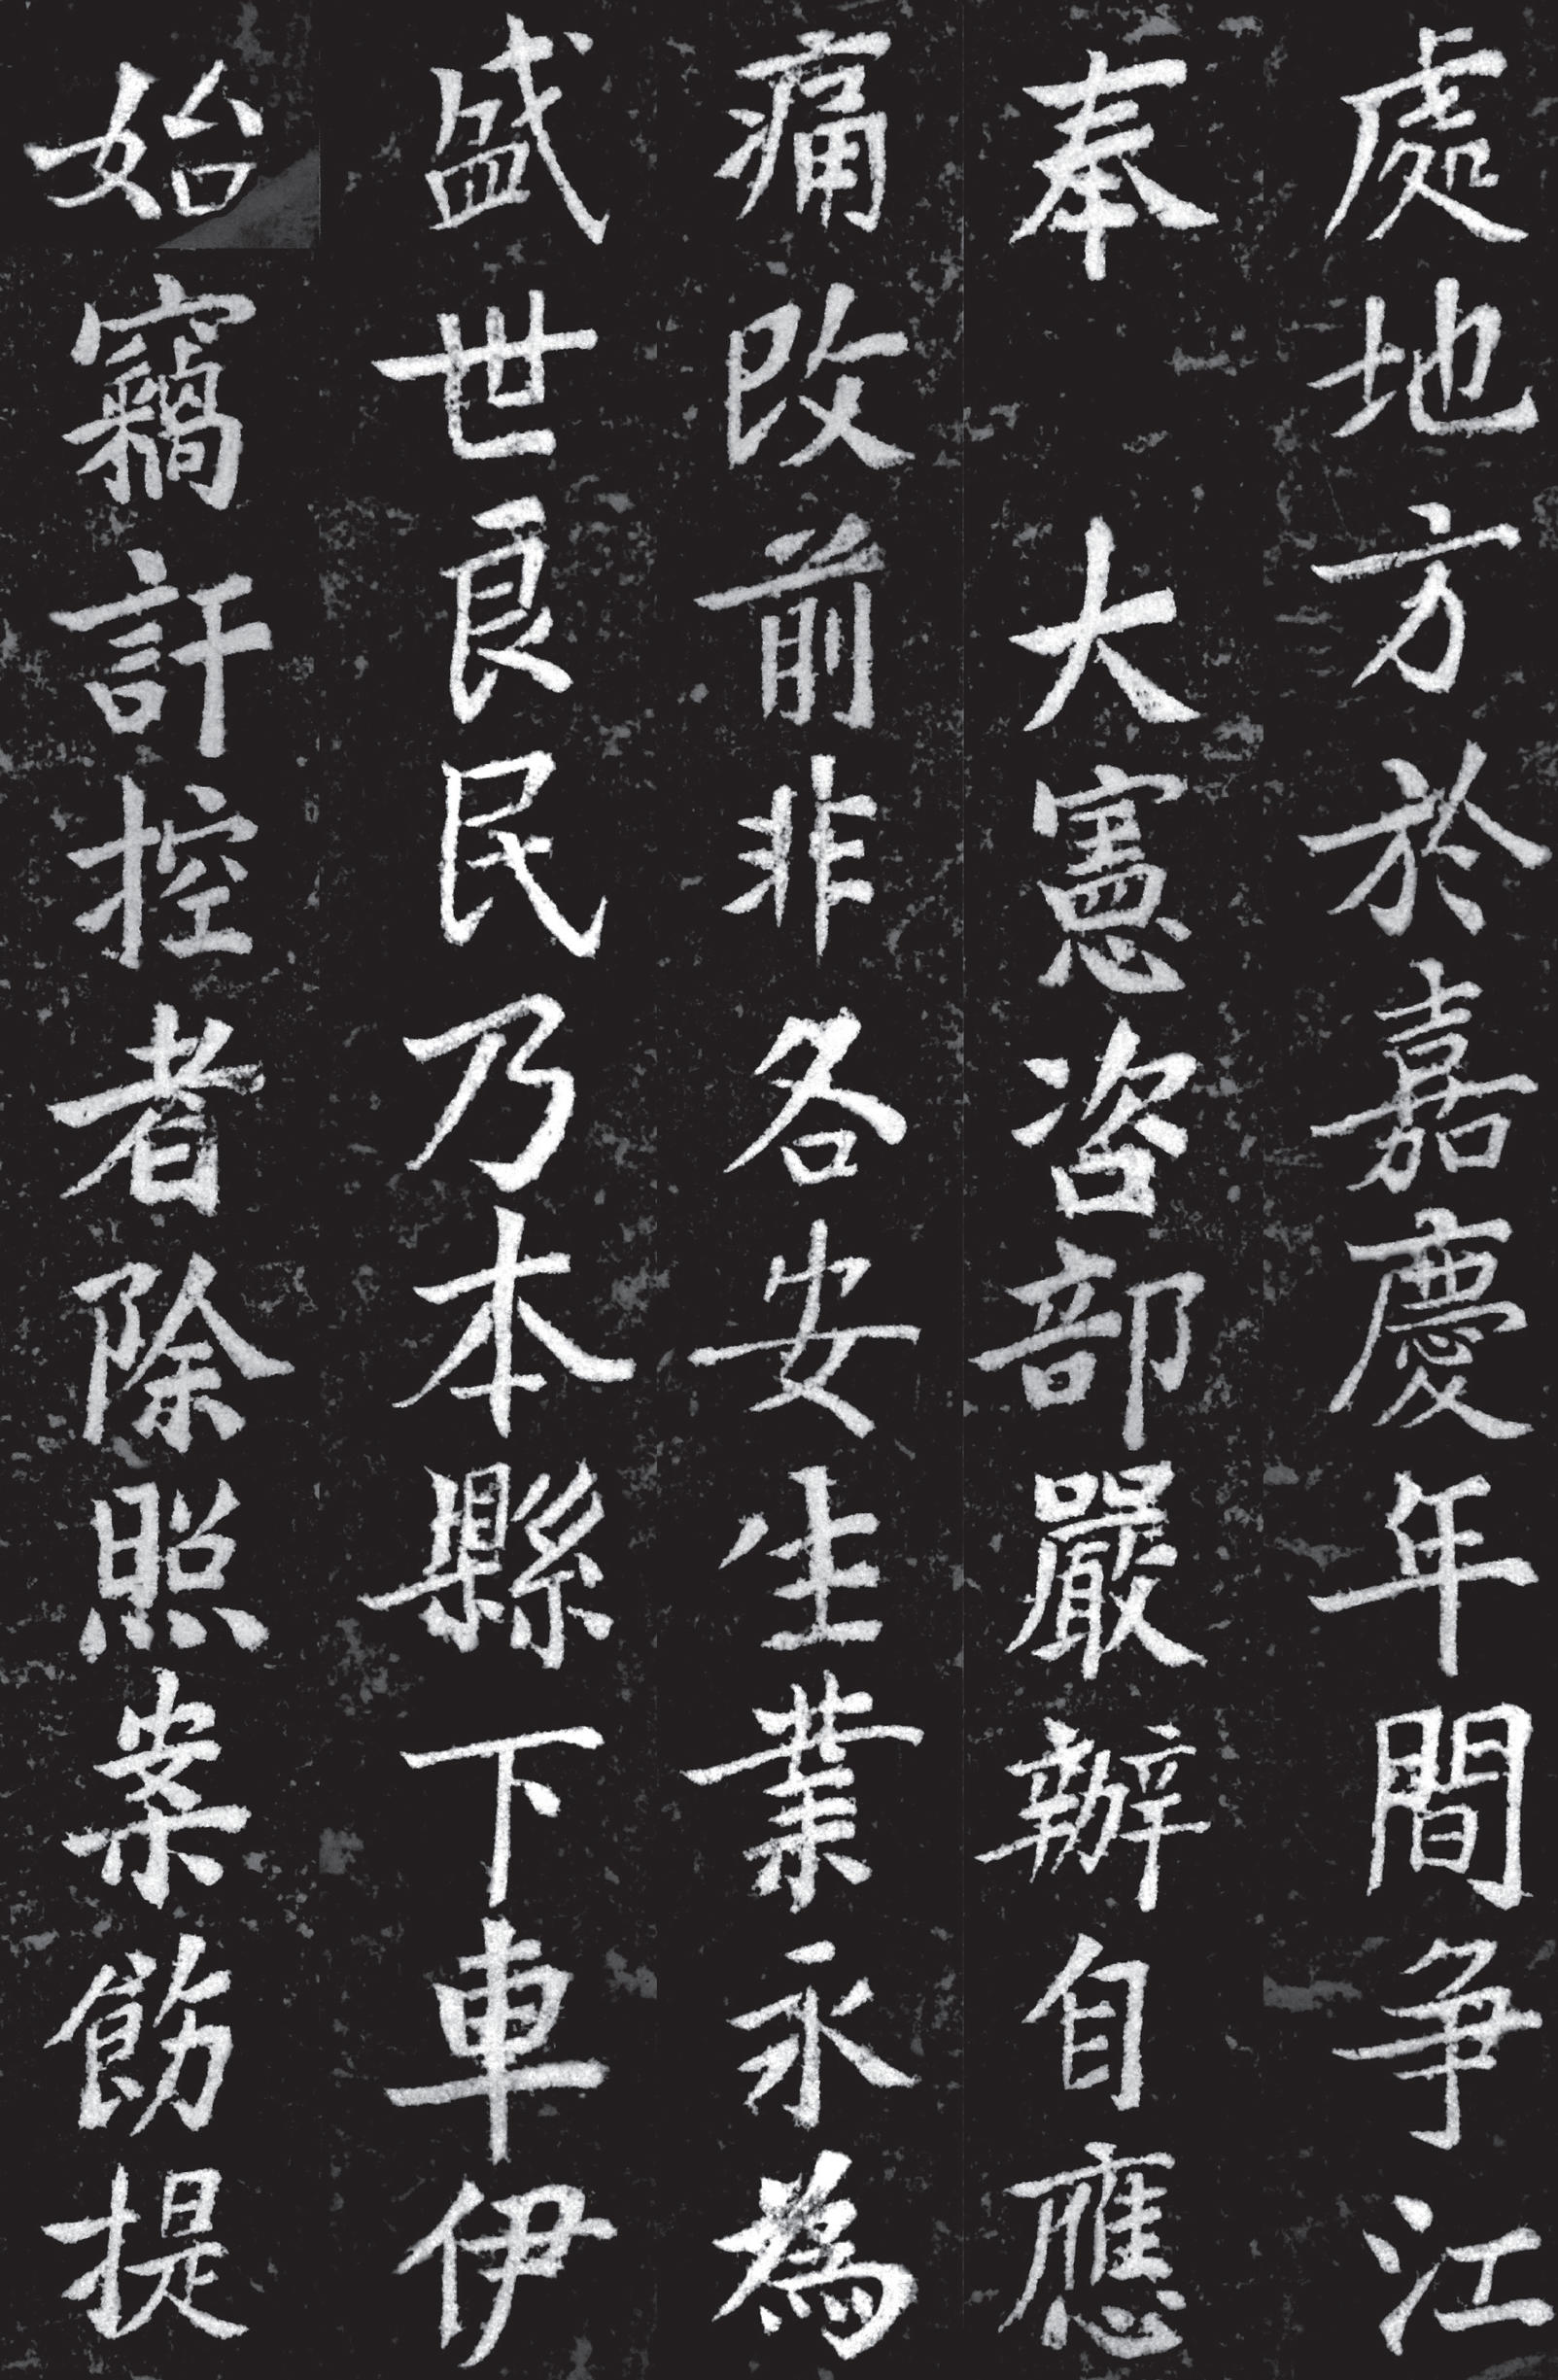 處地方於嘉慶年間爭江
奉 大憲咨部嚴辦自應
痛改前非各安生業永為
盛世良民乃本縣下車伊
始竊訐控者除照案飭提